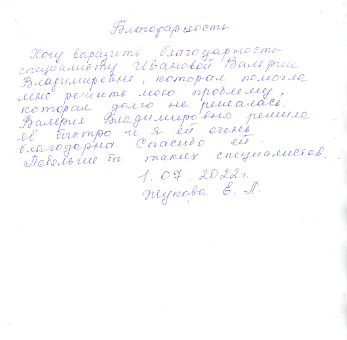 Благодарность
Хочу выразить благодарность
специалисту Ивановой Валерии
Владимировне, которая помогла
мне решить мою проблему,
которая долго не решалась.
Валерия Владимировна решила
её быстро и я ей очень
благодарна Спасибо ей.
Побольше бы таких специалистов.
1.07.2022г.
Жукова Е. Л.